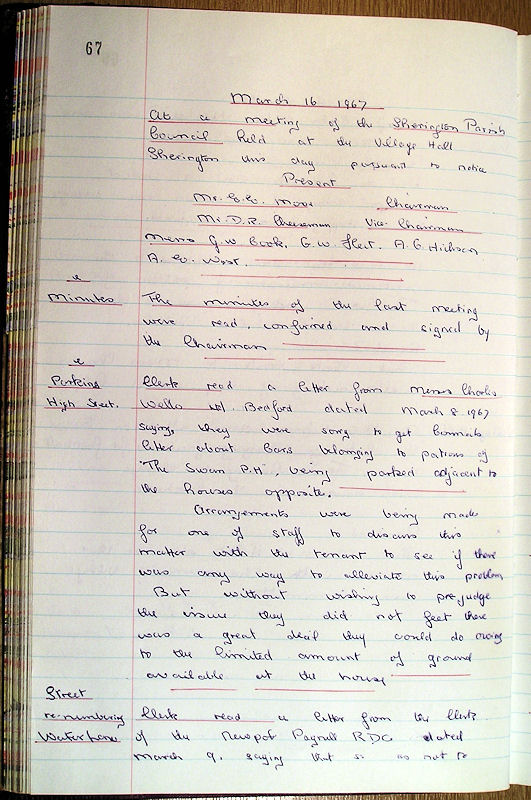 67
March 16 1967
At a meeting of the Sherington Parish
Council held at the Village Hall
Sherington this day pursuant to notice
Present
Mr. Moor Chairman
Mr. D.R. Cheeseman Vice-Chairman
Messrs G.W Cook, G.W. Fleet. A.G. Hickson
A. W. West.
Minutes
The minutes of the last meeting
were read, confirmed and signed by
the Chairman
Parking
High Street.
Clerk read a letter from Messrs Charles
Wells Ltd. Bedford dated March 8 1967
saying, they were sorry to get Council's
letter about Cars belonging to patrons of
"The Swan P.H", being parked adjacent to
the houses opposite.
Arrangements were being made
for one of staff to discuss this
matter with the tenant to see if there
was any way to alleviate this problem
But without wishing to pre-judge
the issue they did not feel there
was a great deal they could do owing
to the limited amount of ground
available at the house
Street
re-numbering
Water Lane
Clerk read a letter from the Clerk
of the Newport Pagnell RDC dated
March 9. saying that so as not to